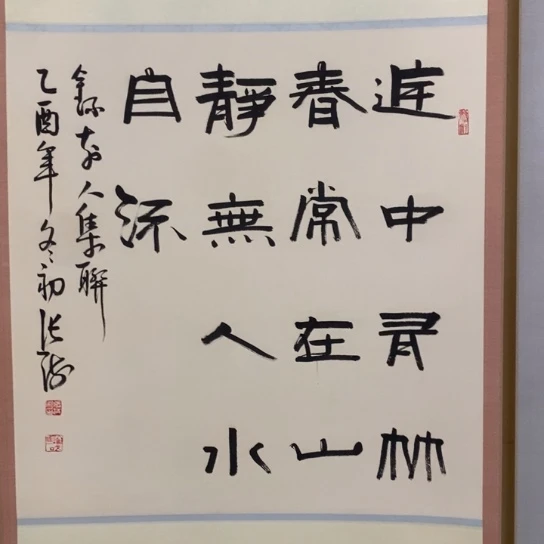 庭中有竹
春常在山
靜無人水
自流
錄前人集聯
乙酉年冬初張